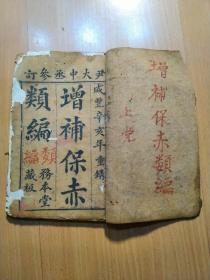 尹大中丞參訂
咸豐辛亥年重鐫
增補保赤
類編
務本堂
藏板
類編
增補保赤類編